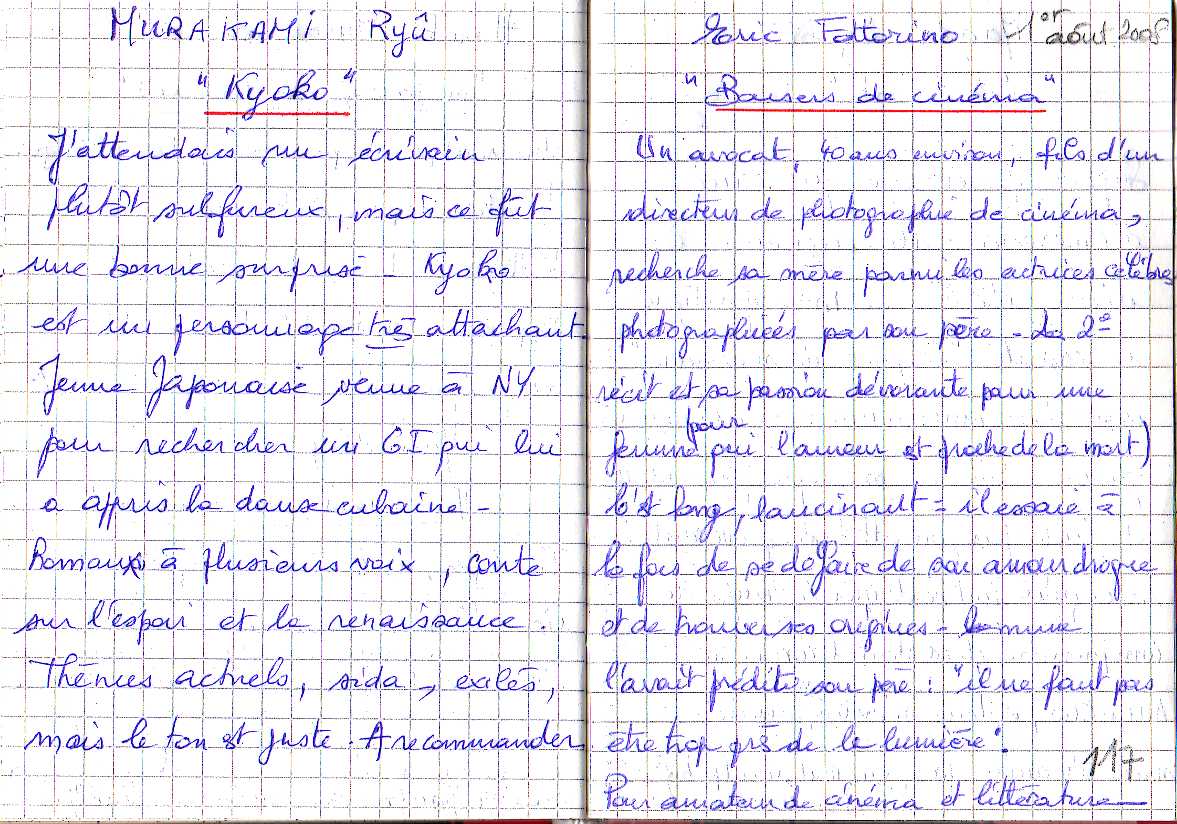 MURAKAMI Ryû
"Kyoko"
J'attendais un écrivain
plutôt sulfureux, mais ce fût
une bonne surprise - Kyoko
est un personnage très attachant.
Jeune Japonaise venue à NY
pour rechercher un GI qui lui
a appris la danse cubaine -
Romans à plusieurs voix, conte
sur l'espoir et la renaissance.
Thèmes actuels, sida, exilés,
mais le ton est juste. A recommander
Eric Fottorino - 1er août 2008
"Baisers de cinéma"
Un avocat, 40 ans environ, fils d'un
directeur de photographie de cinéma,
recherche sa mère parmi les actrices célèbres
photographiées par son père - Le 2e
récit est sa passion dévorante pour une
femme pour qui l'amour est proche de la mort)
C'est long, lancinant = il essaie à
la fois de se défaire de son amour drogue
et de trouver ses origines -
l'avait prédit son père : "il ne faut pas
être trop près de la lumière".
Pour amateur de cinéma et littérature -
117